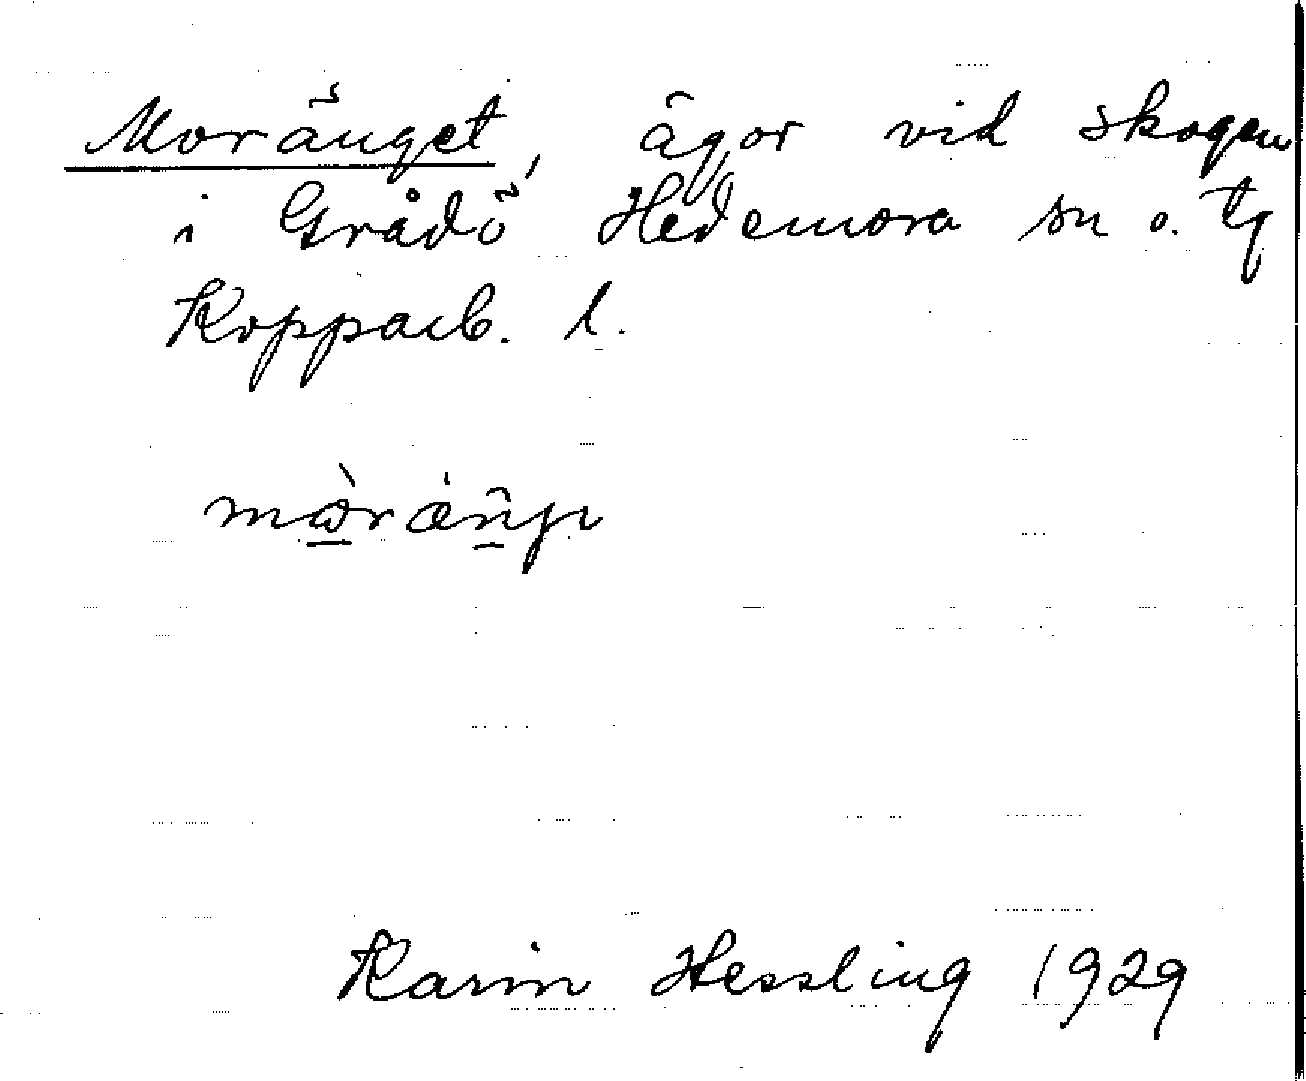 Moränget, ägor vid skogen
i Grådö Hedemora sn o. tg
Kopparb. l.
Karin Hessling 1929